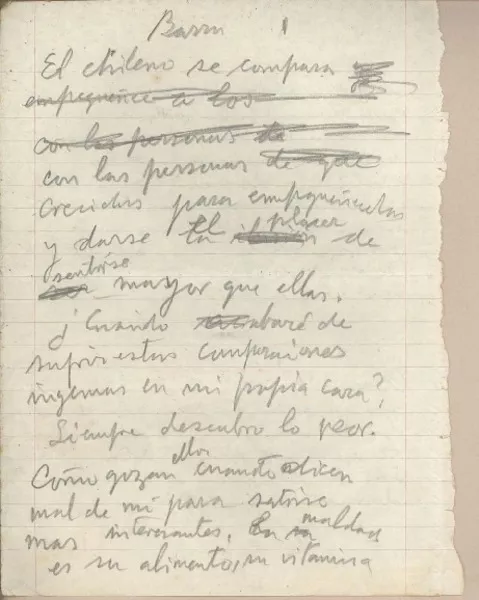 Barrn 1
El chileno se compara
empequeñece a los
con las personas de
con las personas de que
crecidas para empequeñecerlas
y darse el placer de
sentirse mayor que ellas.
¿Cuándo acabaré de
sufrir estas comparaciones
ingenuas en mi propia cara?,
Siempre descubro lo peor.
Cómo gozan ellos cuando dicen
mal de mi para sentirse
mas interesantes. La maldad
es su alimento, su vitamina